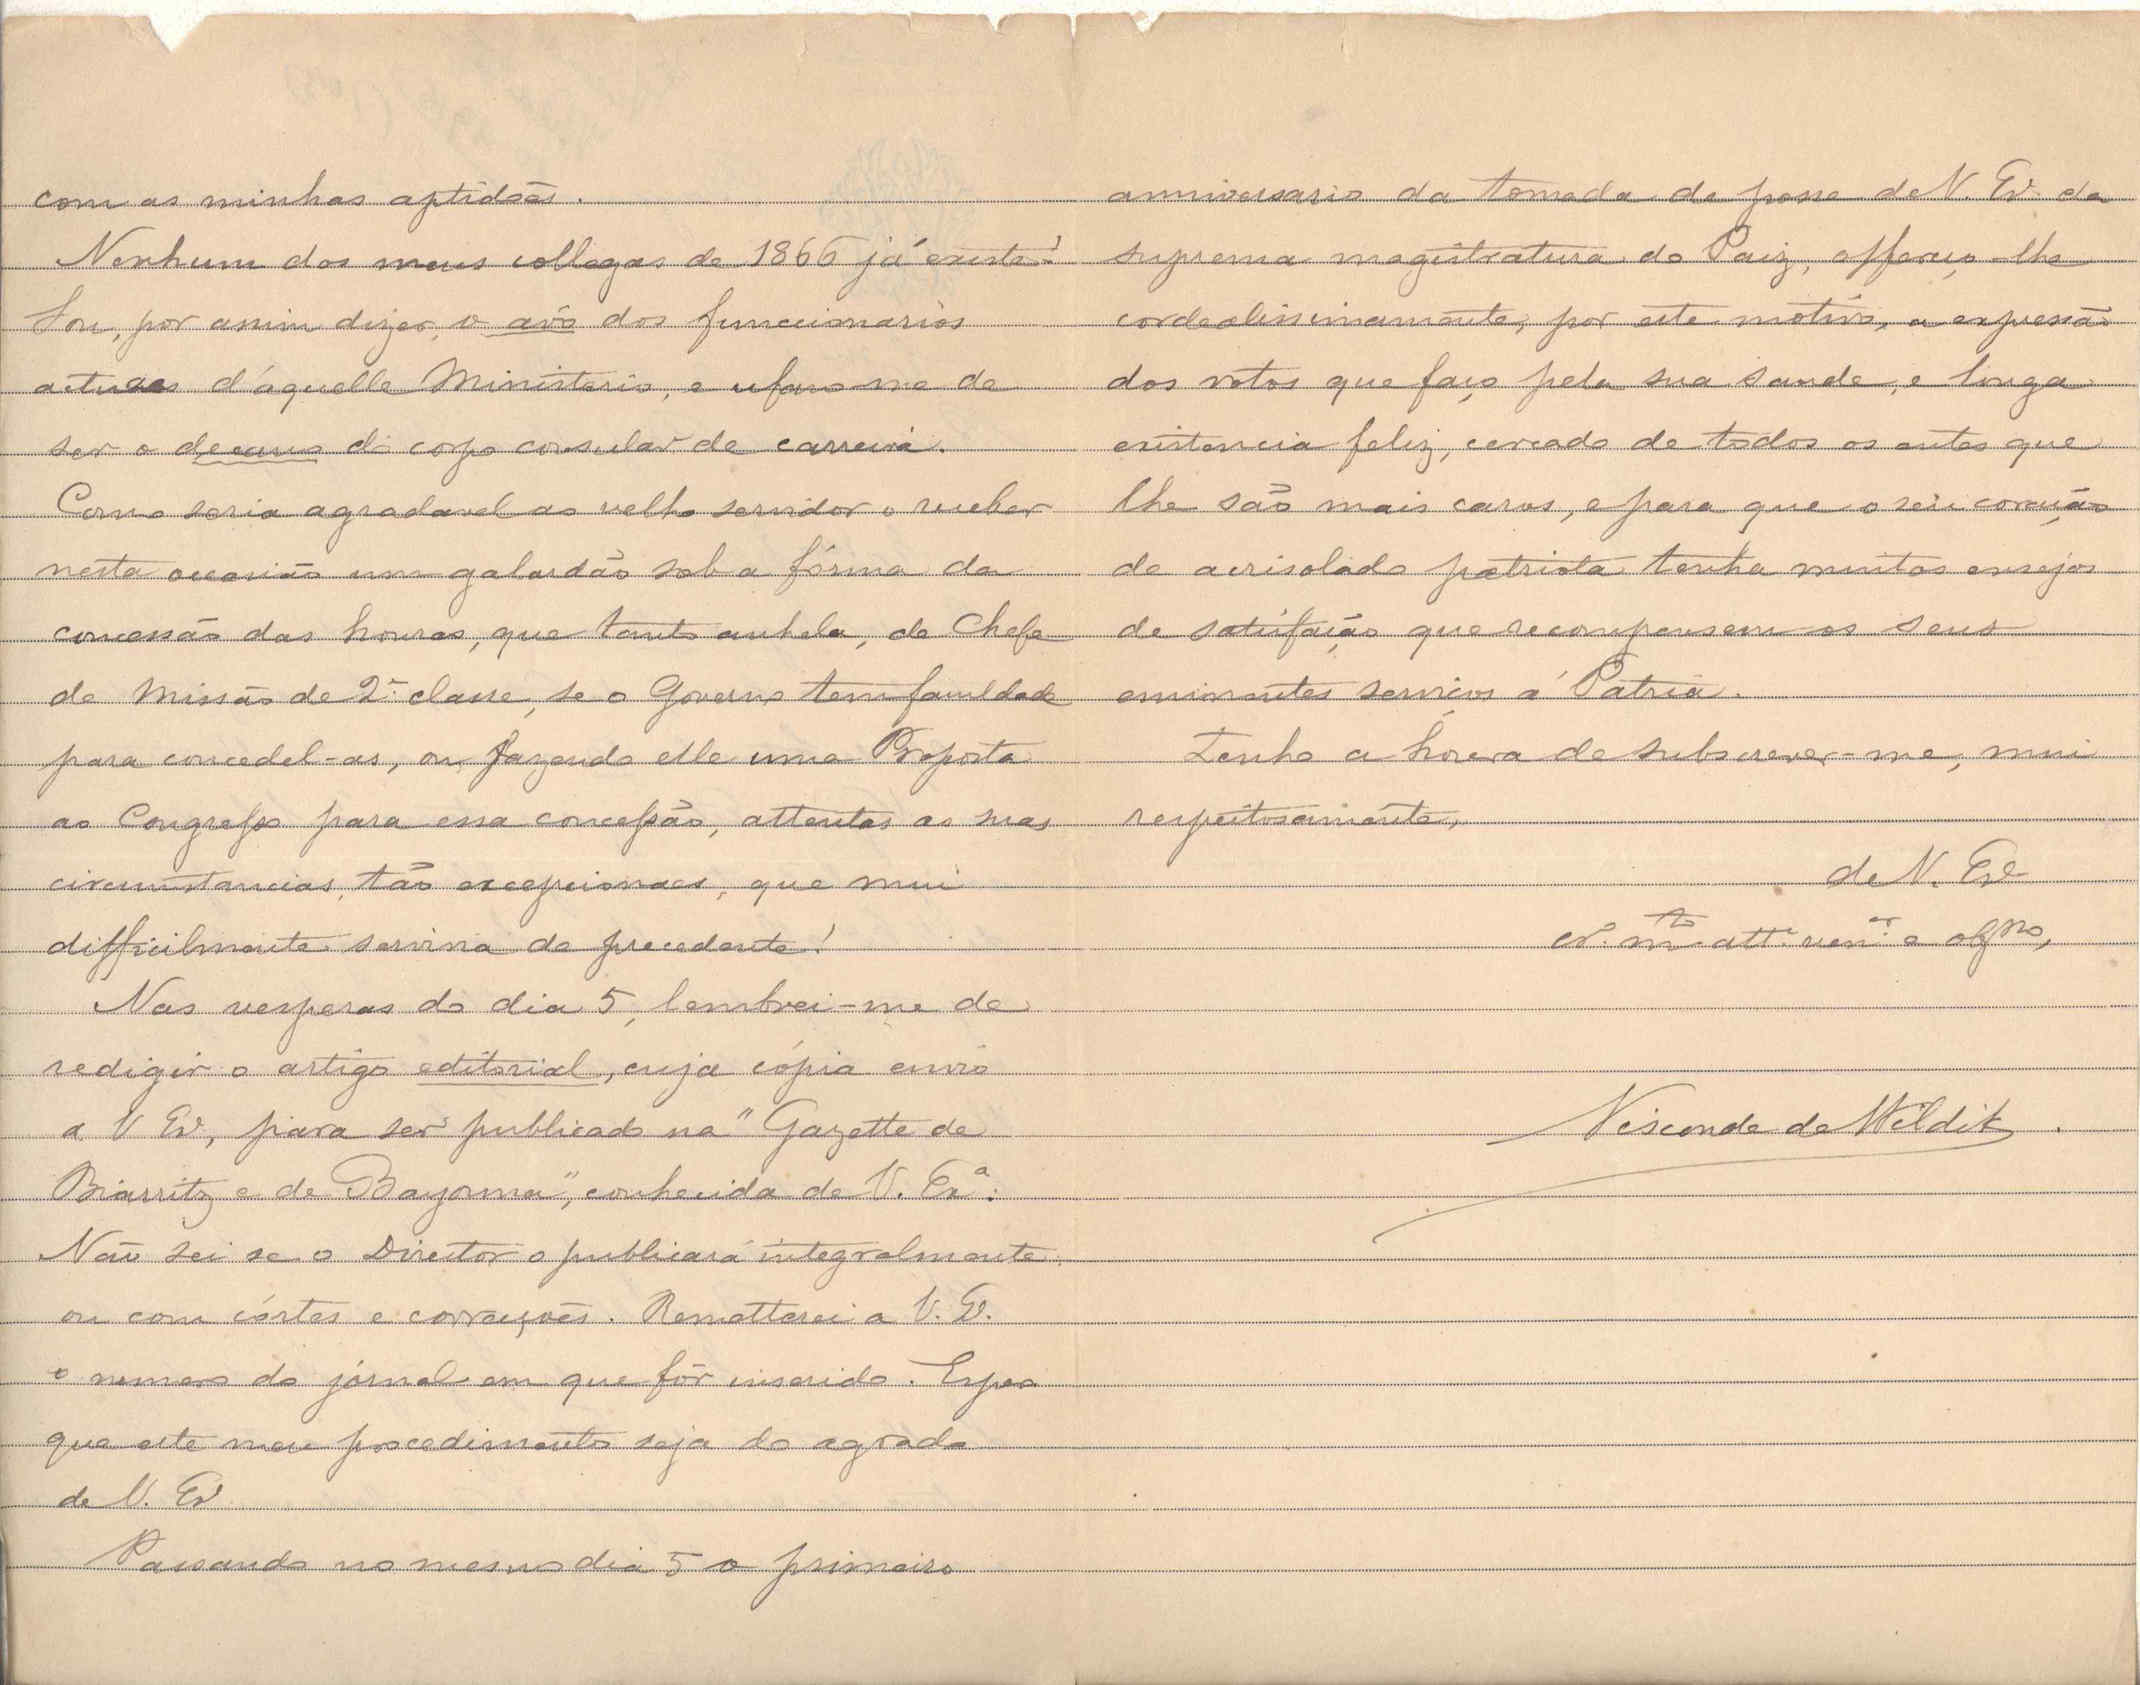 com as minhas aptidões.
Nenhum dos meus collegas de 1866 já existe!
Sou, por assim dizer, o avô dos funccionarios
actuaes d'aquelle Ministerio, e ufano-me de
ser o decano do corpo consular de carreira.
Como seria agradavel ao velho servidor o receber
nesta occasião um galardão sob a fórma da
concessão das honras, que tanto anhela, de Chefe
de Missão de 2ª classe, se o Governo tem faculdade
para concedel-as, ou fazendo elle uma Proposta
ao Congresso para essa concessão, attentas as suas
circumstancias, tão excepcionaes, que mui
difficilmente serviria de precedente!
Nas vesperas do dia 5, lembrei-me de
redigir o artigo editorial, cuja cópia envio
a V Exª, para ser publicado na "Gazette de
Biarritz e de Bayonna", conhecida de V. Exª.
Não sei se o Director o publicará integralmente
ou com córtes e correcções. Remetterei a V. Exª.
o numero do jornal em que fôr inserido. Espero
que este meu procedimento seja do agrado
de V. Exª
Passando no mesmo dia 5 o primeiro
anniversario da tomada de posse de V. Exª da
suprema magistratura do Paiz, offereço-lhe
cordealissimamente, por este motivo, a expressão
dos votos que faço pela sua saude, e longa
existencia feliz, cercado de todos os entes que
lhe são mais caros, e para que o seu coração
de acrisolado patriota tenha muitos ensejos
de satisfação que recompensem os seus
eminentes serviços á Patria.
Tenho a honra de subscrever-me, mui
respeitosamente,
de V. Exª
cr. mto att. venor e obgmo,
Visconde de Wildik.